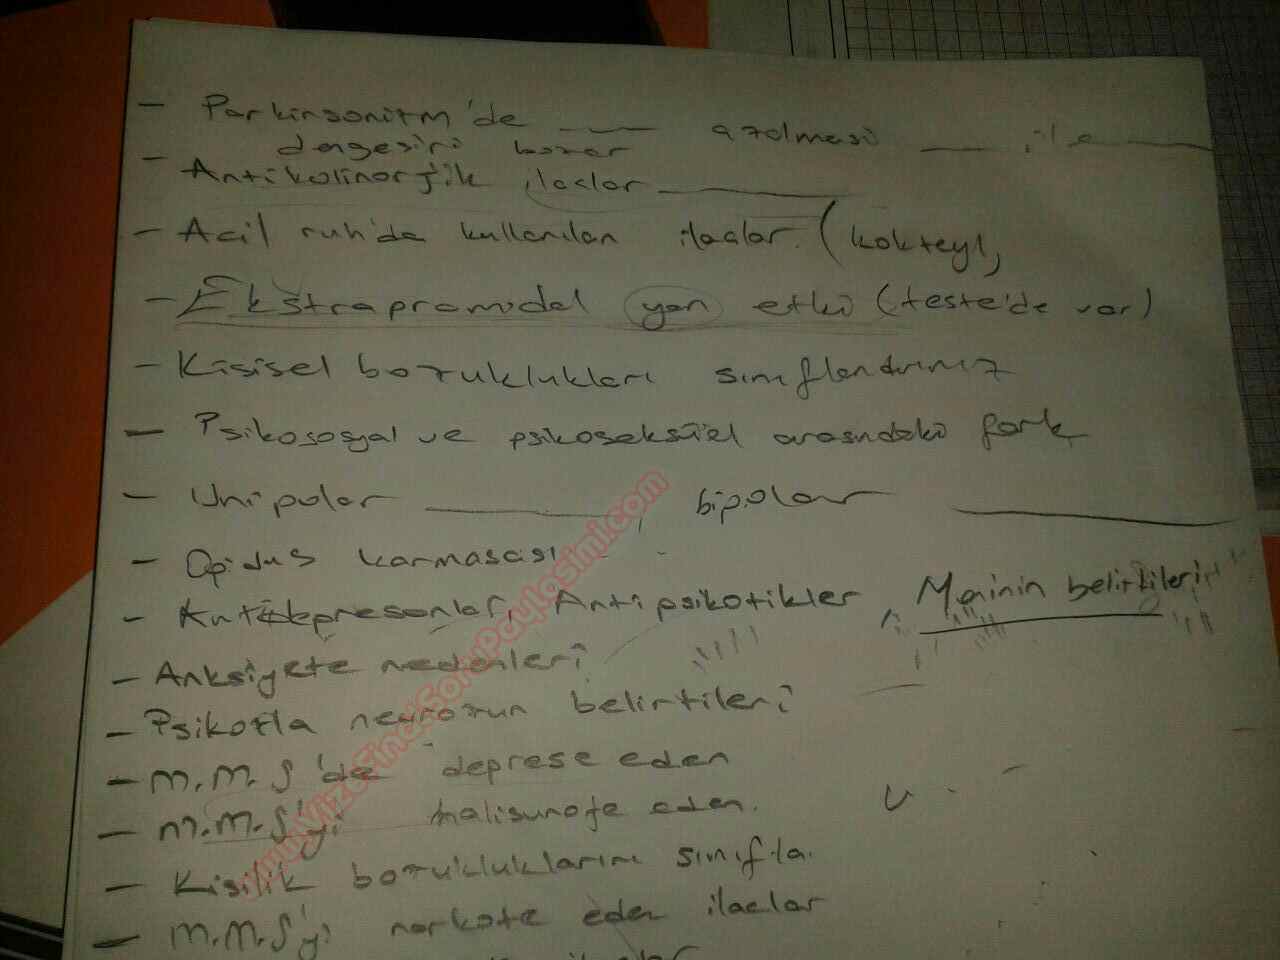 - Parkinsonizm'de ____ azalması ____ ile ____
dengesini bozar
- Antikolinerjik ilaçlar ____
- Acil ruh'da kullanılan ilaçlar (kokteyl,
- Ekstrapramidal yan etki (teste'de var)
- Kisisel bozuklukları sınıflandırınız
- Psikososyal ve psikoseksüel arasındaki fark
- Unipolar ____, bipolar ____
- Opidus karmasası
- Antidepresanlar, Antipsikotikler, Maninin belirtileri
- Anksiyete nedenleri
- Psikozla nevrozun belirtileri
- M.M.S'de deprese eden
- M.M.S'yi halisunaje eden.
- Kisilik bozukluklarını sınıfla.
- M.M.S'yi narkote eden ilaclar
www.VizeFinalSoruPaylasimi.com